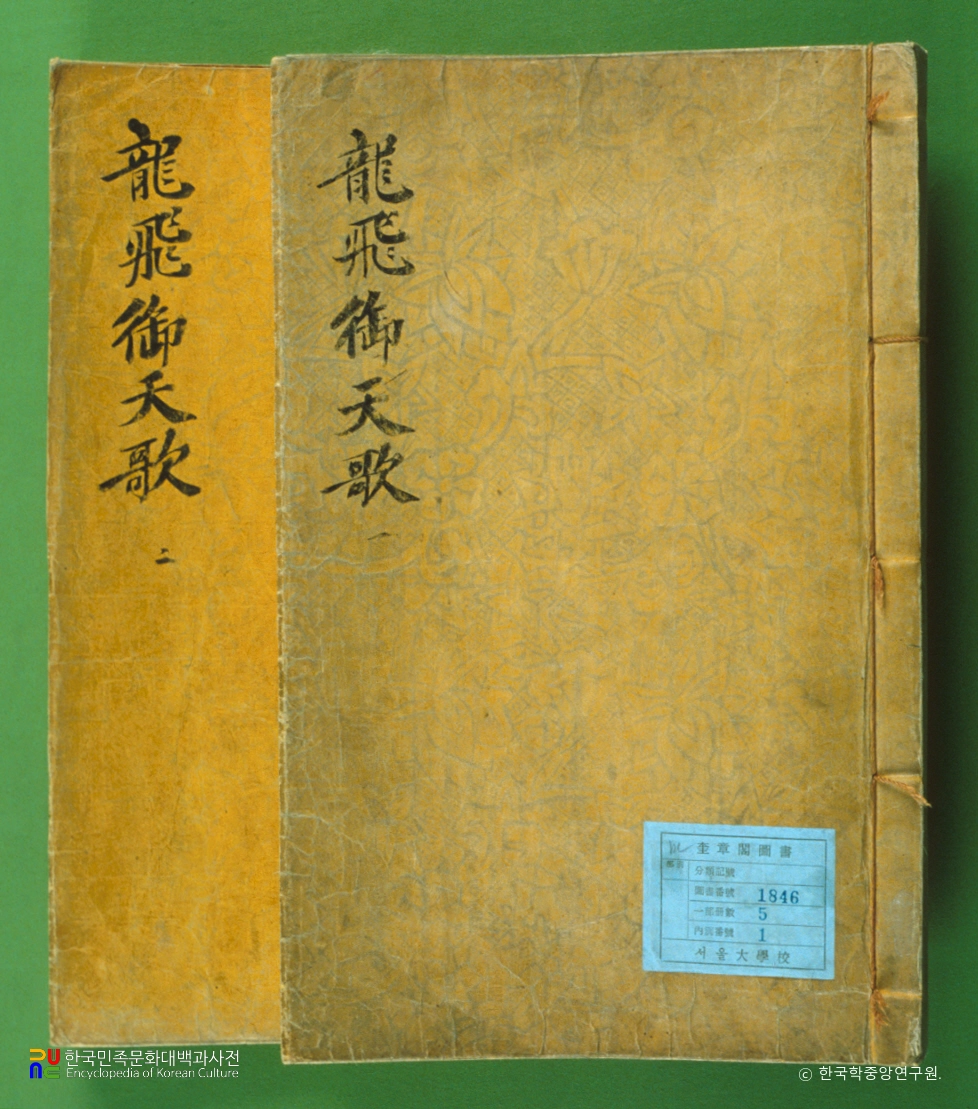 龍飛御天歌
一
龍飛御天歌
二
圭章閣圖書
分類記號
圖書番號 1846
一部冊數 5
內區番號 1
서울大學校
한국민족문화대백과사전
Encyclopedia of Korean Culture
© 한국학중앙연구원.